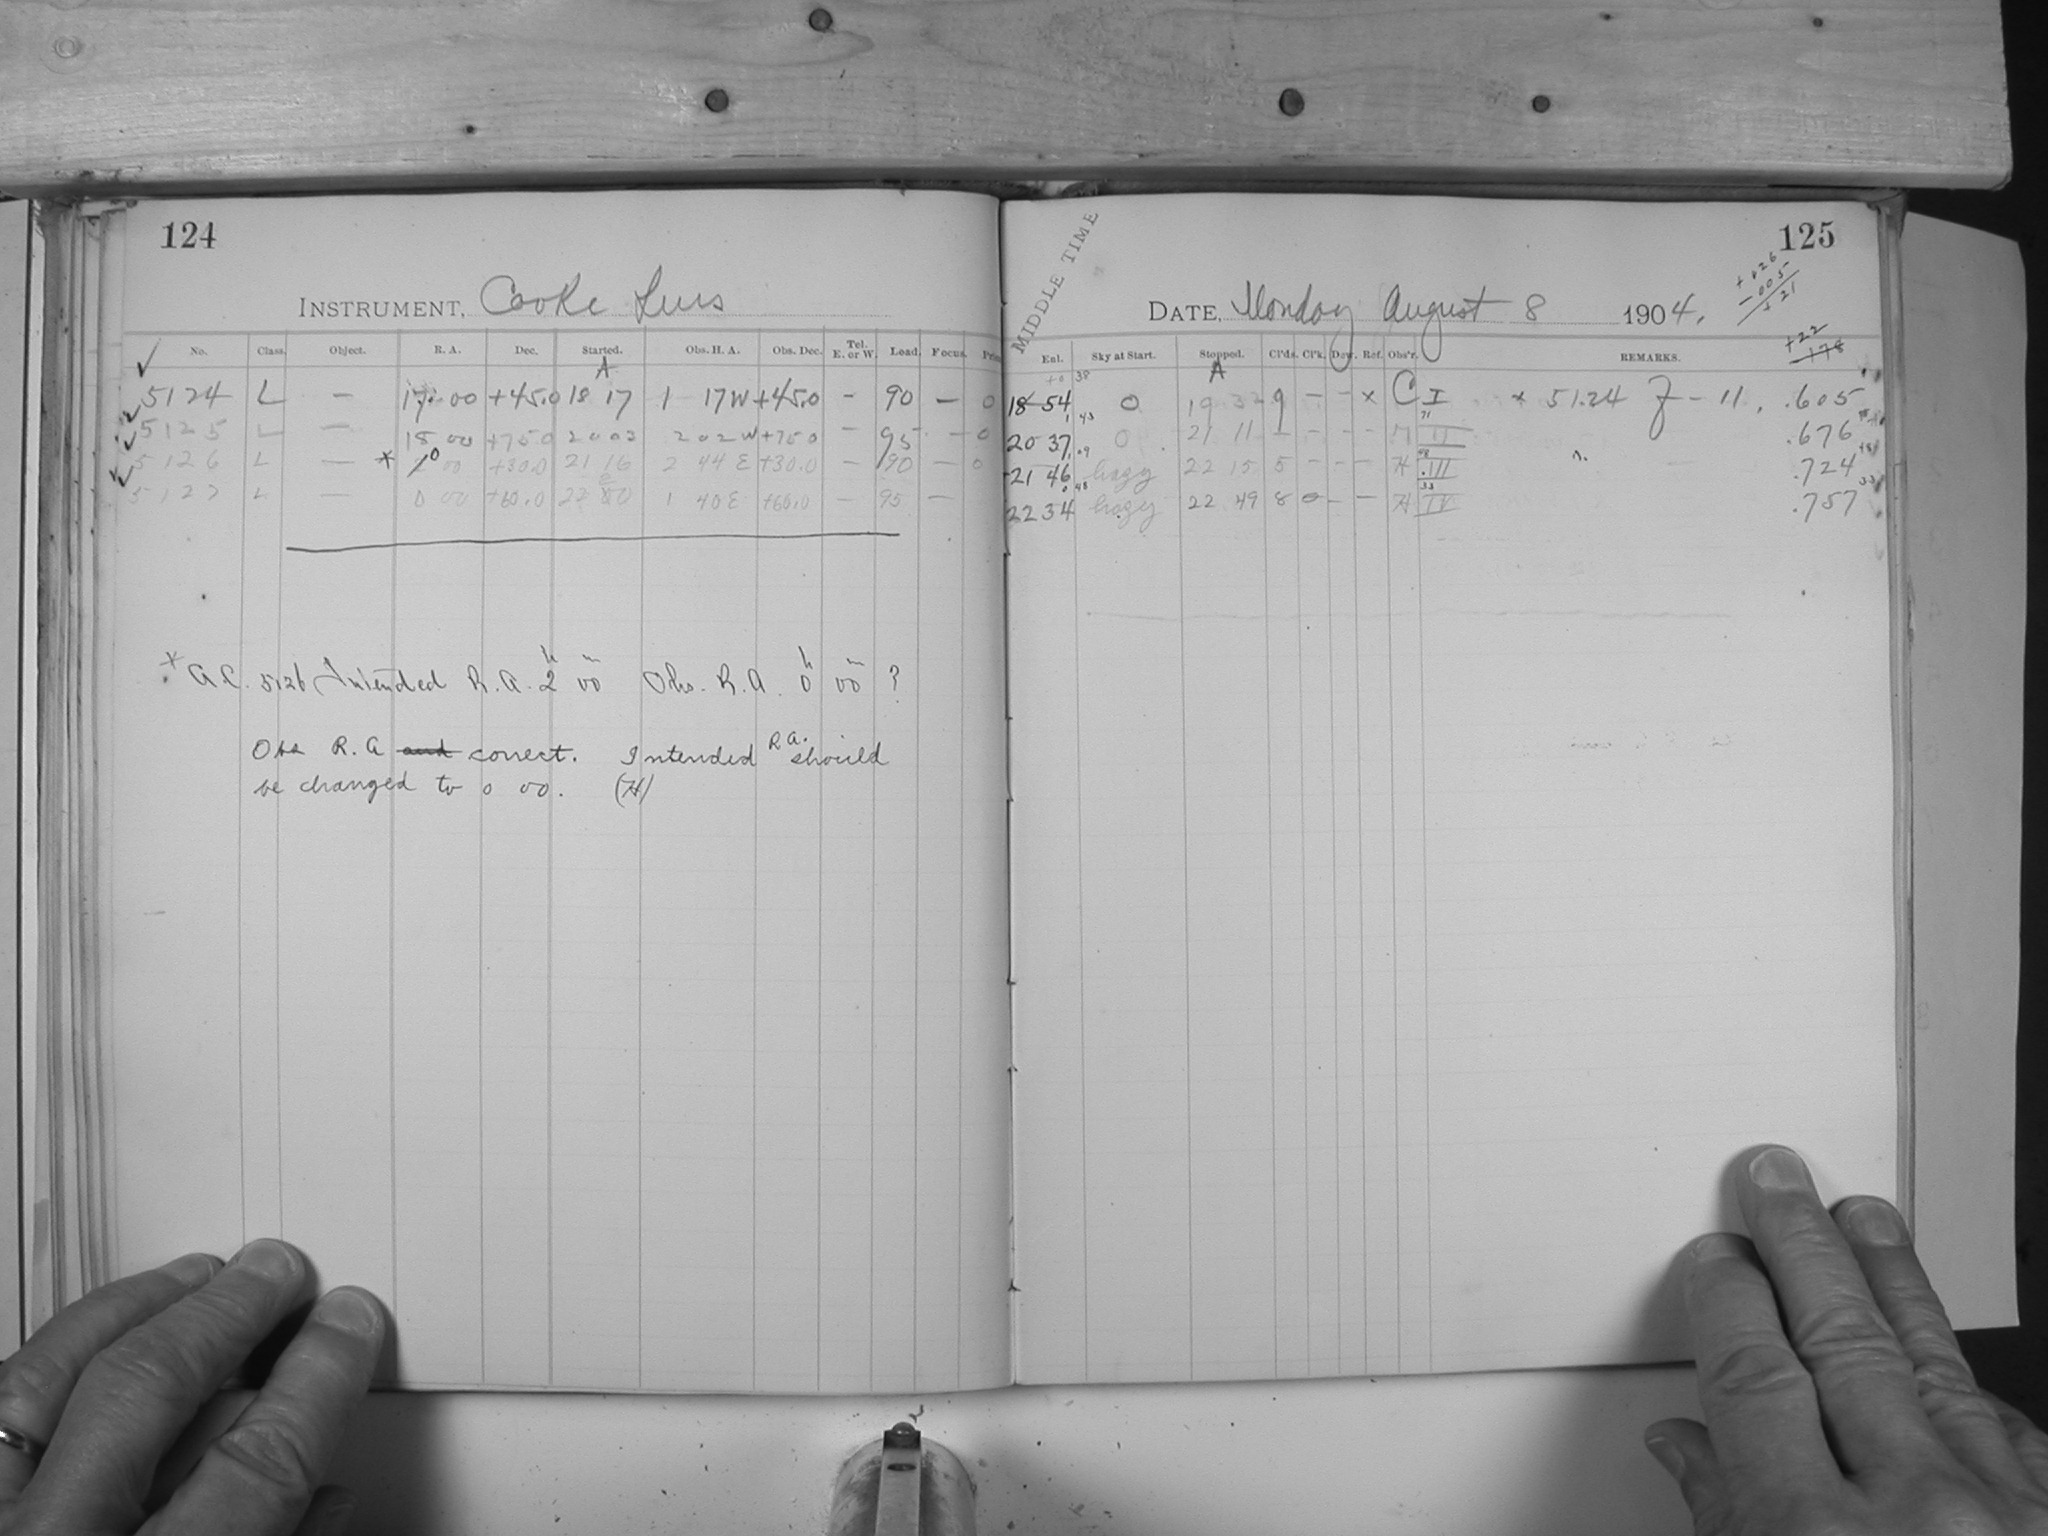 124
INSTRUMENT, Cooke Lens
No. Class. Object. R. A. Dec. Started. Obs. H. A. Obs. Dec. Tel. E. or W. Load. Focus.
A
5124 L — 17 00 +45.0 18 17 1 17W +45.0 — 90 — 0
5125 L — 18 00 +75.0 20 03 2 02W +75.0 — 95 — 0
5126 L — * 0 00 +30.0 21 16 2 44E +30.0 — 90 — 0
5127 L — 0 00 +60.0 22 1 40E +60.0 — 95 —
* A.C. 5126 Intended R. A. 2h 00m Obs. R. A. 0h 00m ?
Obs R. A and correct. Intended R.A. should
be changed to 0 00. (H)
125
MIDDLE TIME
+ 026
- 005
+ 21
DATE, Monday August 8 1904.
+22
178
Enl. Sky at Start. Stopped. Cl'ds. Cl'k. Dew. Ref. Obs'r. REMARKS.
A
18 54 0 19 32 9 — — x C I x 5124 Z - 11. .605
20 37 0 21 11 — — — — H II .676
21 46 hazy 22 15 5 — — — H III .724
22 34 hazy 22 49 8 0 — — H IV .757